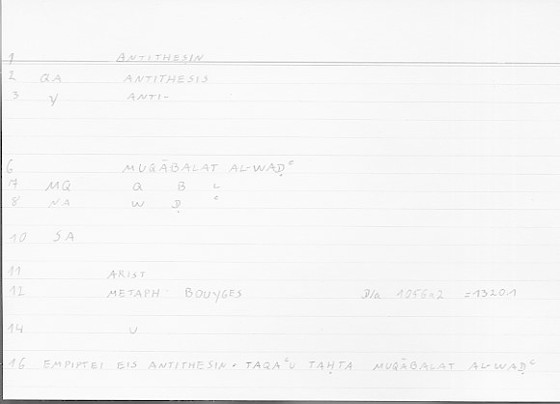 1 ANTITHESIN
2 QA ANTITHESIS
3 V ANTI-
6 MUQĀBALAT AL-WAḌʿ
7 MQ Q B L
8 NA W Ḍ ʿ
10 SA
11 ARIST
12 METAPH BOUYGES 1056a2 =1320,1
14 U
16 EMPIPTEI EIS ANTITHESIN. TAQAʿU TAḤTA MUQĀBALAT AL-WAḌʿ